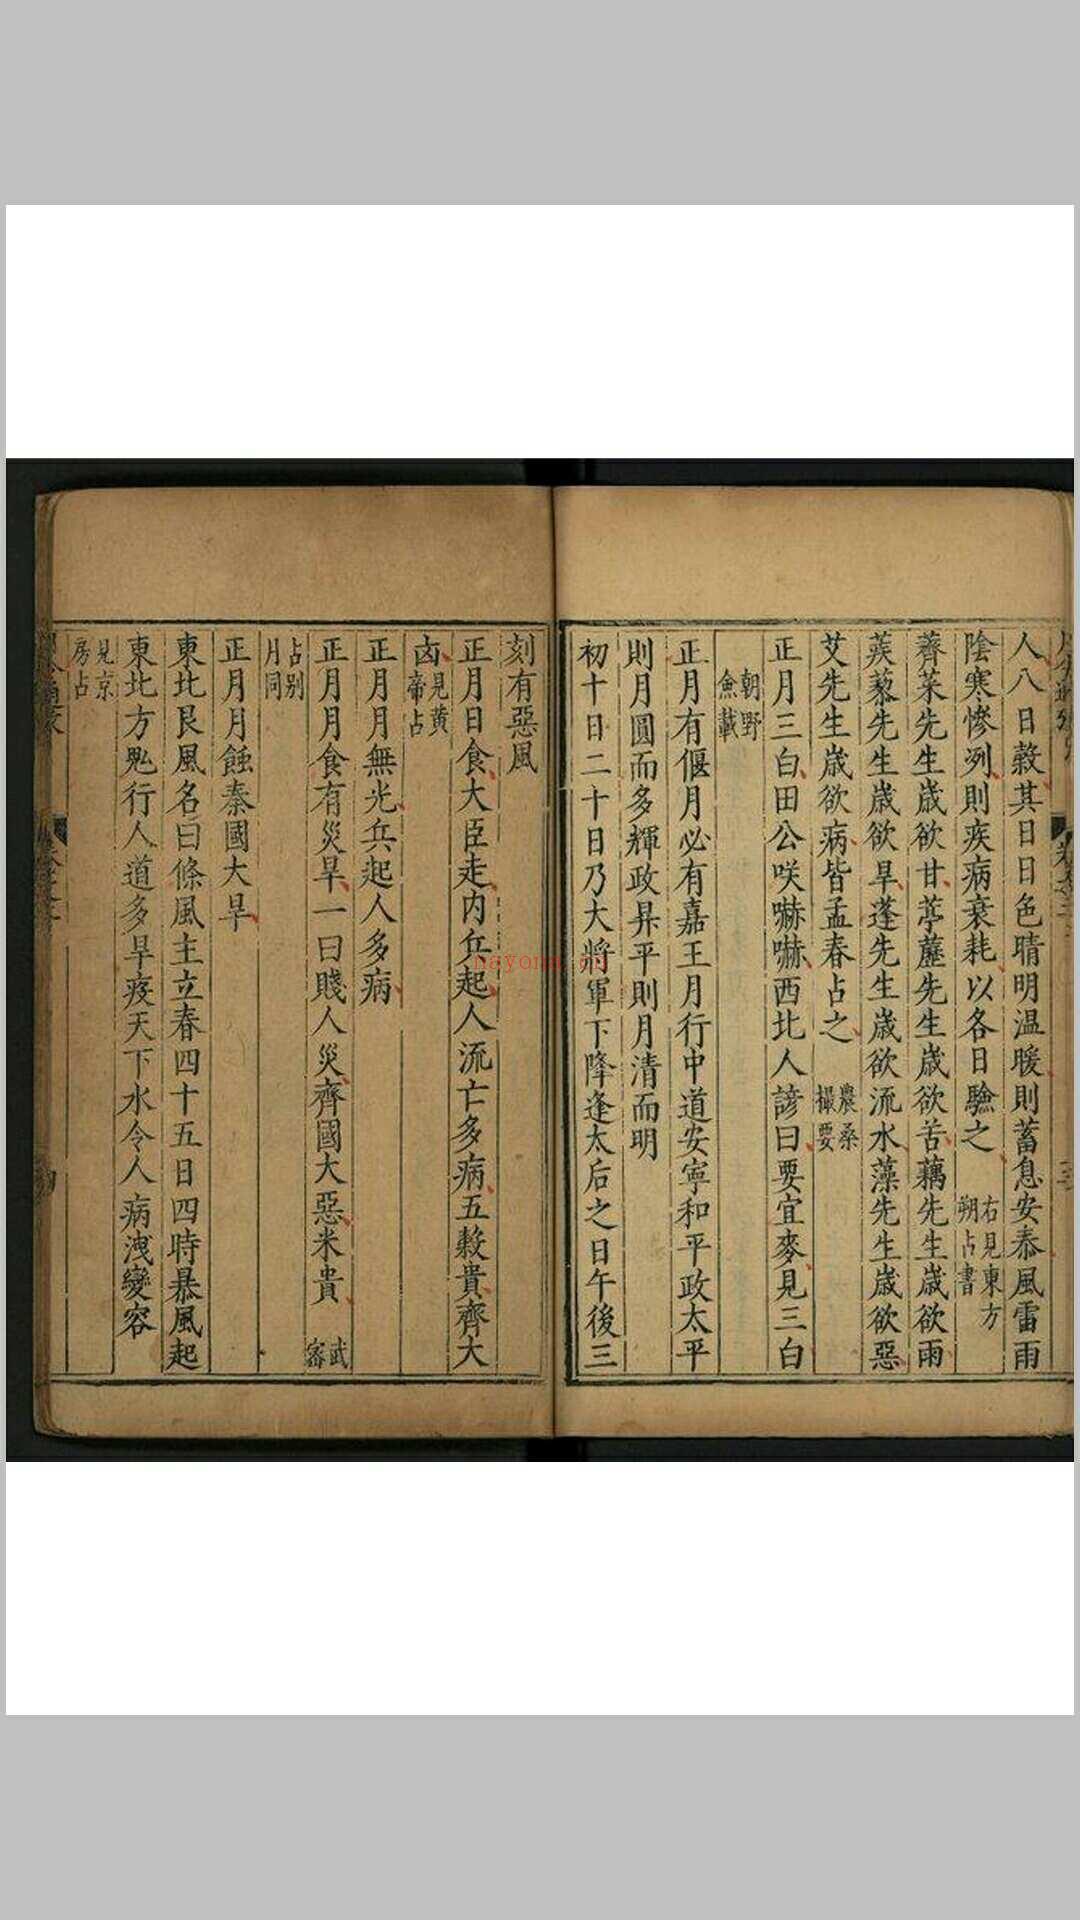 人八日穀其日日色晴明温暖則蓄息安泰風雷雨
陰寒慘冽則疾病衰耗以各日驗之 右見東方朔占書
薺菜先生歳欲甘葶藶先生歳欲苦藕先生歳欲雨
蒺藜先生歳欲旱蓬先生歳欲流水藻先生歳欲惡
艾先生歳欲病皆孟春占之 農桑撮要
正月三白田公咲嚇嚇西北人諺曰要宜麥見三白
朝野僉載
正月有偃月必有嘉王月行中道安寧和平政太平
則月圓而多輝政昇平則月清而明
初十日二十日乃大將軍下降逢太后之日午後三
刻有惡風
正月日食大臣走内兵起人流亡多病五穀貴齊大
凶 見黄帝占
正月月無光兵起人多病
正月月食有災旱一曰賤人災齊國大惡米貴 武密
占别月同
正月月蝕秦國大旱
東北艮風名曰條風主立春四十五日四時暴風起
東北方乳行人道多旱疫天下水令人病洩變容
見京房占
nayona.cn